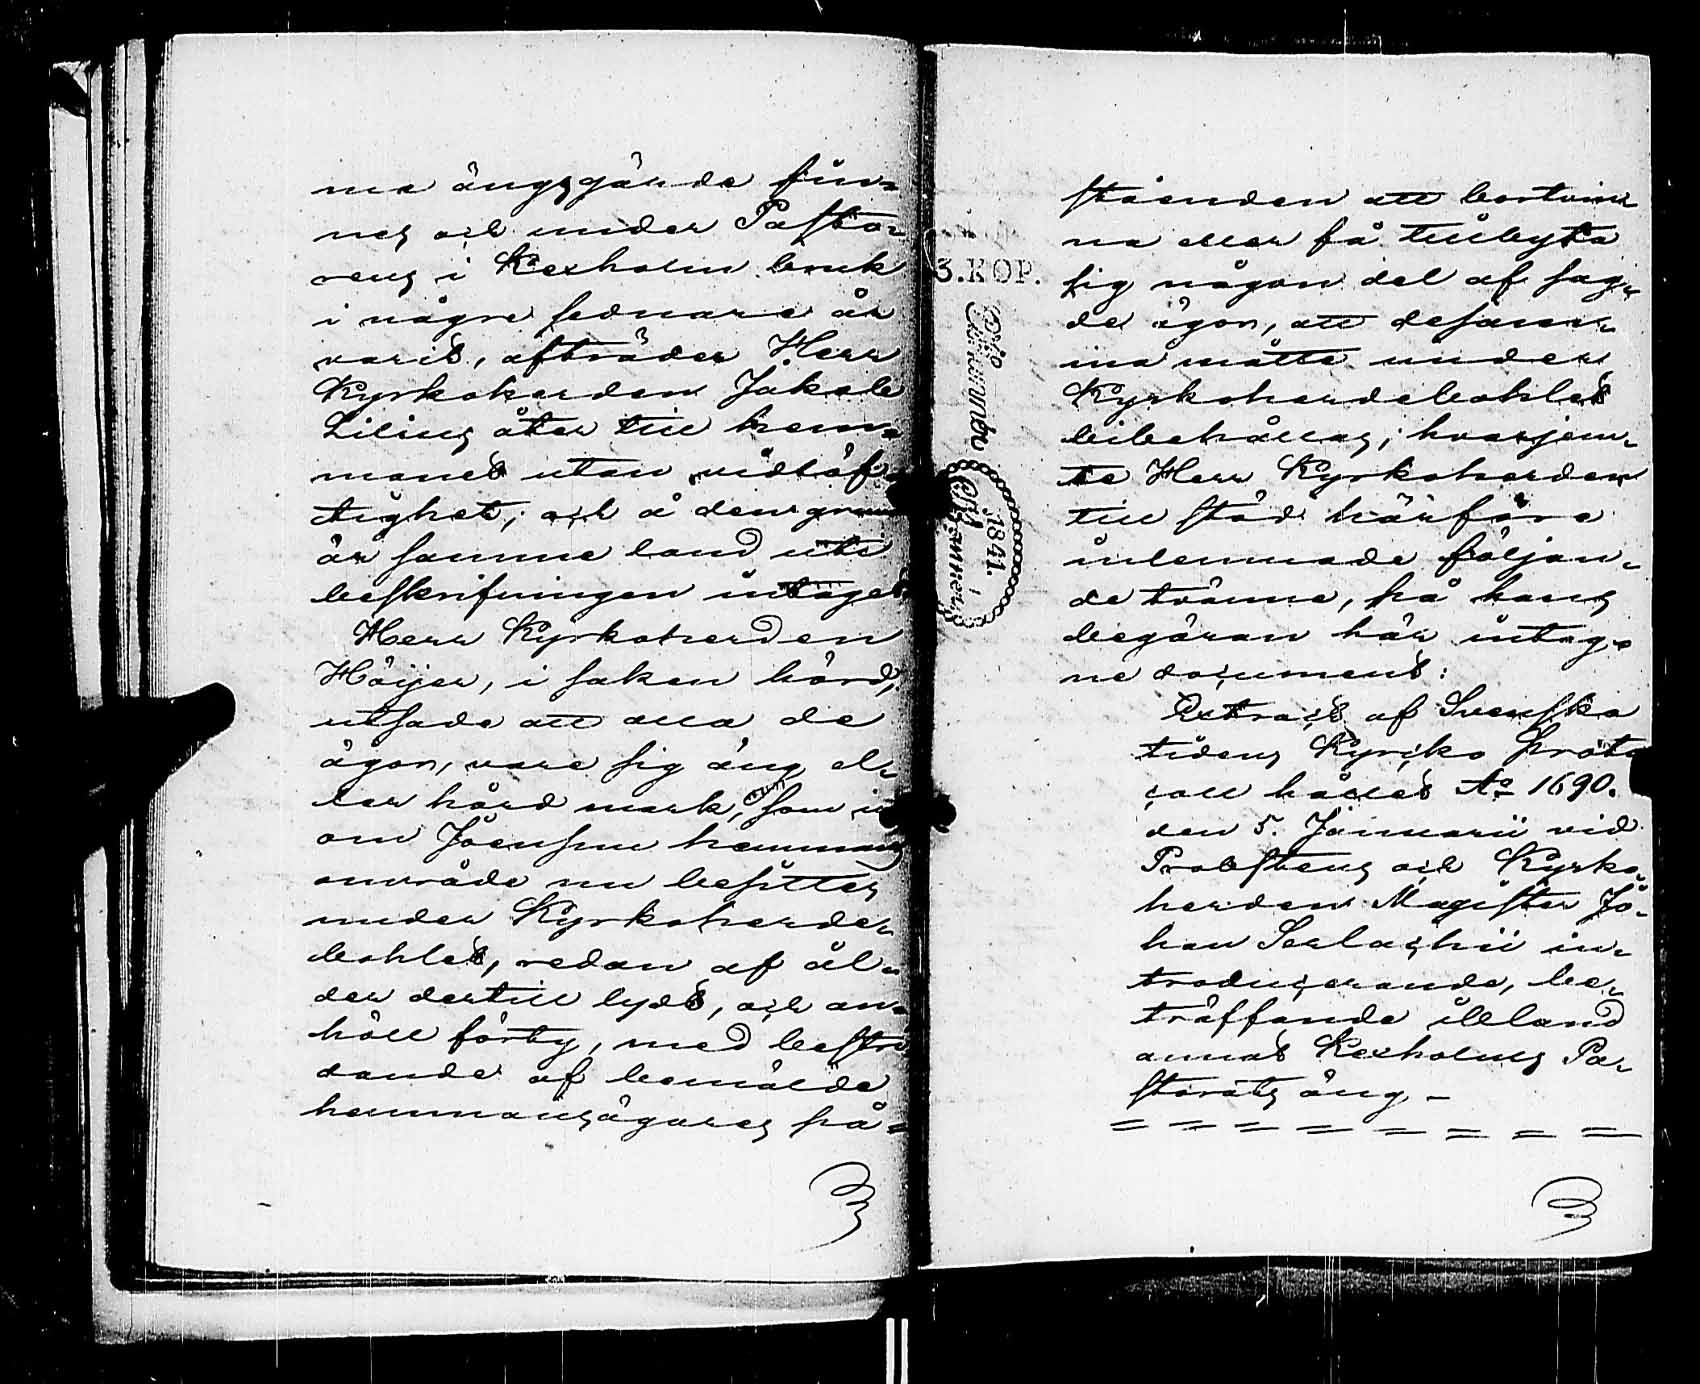 ma ängsgärde fun-
nes och under Pasto-
rens i Kexholm bruk
i någre sednare år
varit, afträder Herr
Kyrkoherden Jakob
Lilius åter till hem-
manet utan vidlöf-
tighet; och å den grund
är samme land uti
beskrifningen intaget
Herr Kyrkoherden
Höijer, i saken hörd,
utsade att alla de
ägor, vare sig äng el-
ler hård mark, som in
om Joensuu hemmans
område nu besittes
under Kyrkoherde-
bohlet, redan af ål-
der dertill lydt, och an-
höll förty, med bestri
dande af bemälde
hemmansägares på-
3.KOP.
1841.
ståenden att bortvin-
na eller få tillbyta
sig någon del af sag-
de ägor, att desam-
ma måtte under
Kyrkoherdebohlet
bibehållas; hvarjem-
te Herr Kyrkoherden
till stöd härföre
inlemnade följan-
de tvänne, på hans
begäran här intag-
ne document:
Extract af Svenska
tidens Kyrcko Proto
coll hållet Ao 1690.
den 5. Januarii vid
Probstens och Kyrko-
herden Magister Jo-
han Serlachii in-
troducerande, be-
träffande ibland
annat Kexholms Pa-
storats äng -